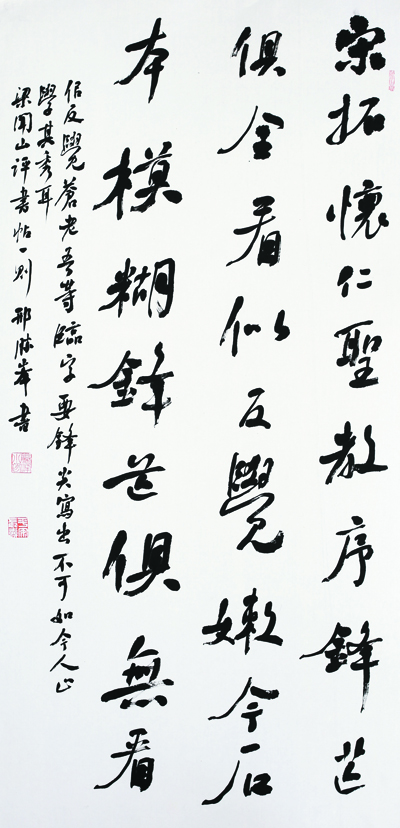 宋拓懷仁聖教序鋒芒
俱全看似反覺嫩今石
本模糊鋒芒俱無看
佀反覺蒼老吾等臨字要鋒尖寫出不可如今人止
學其秃耳
梁聞山評書帖一則 邢峯書